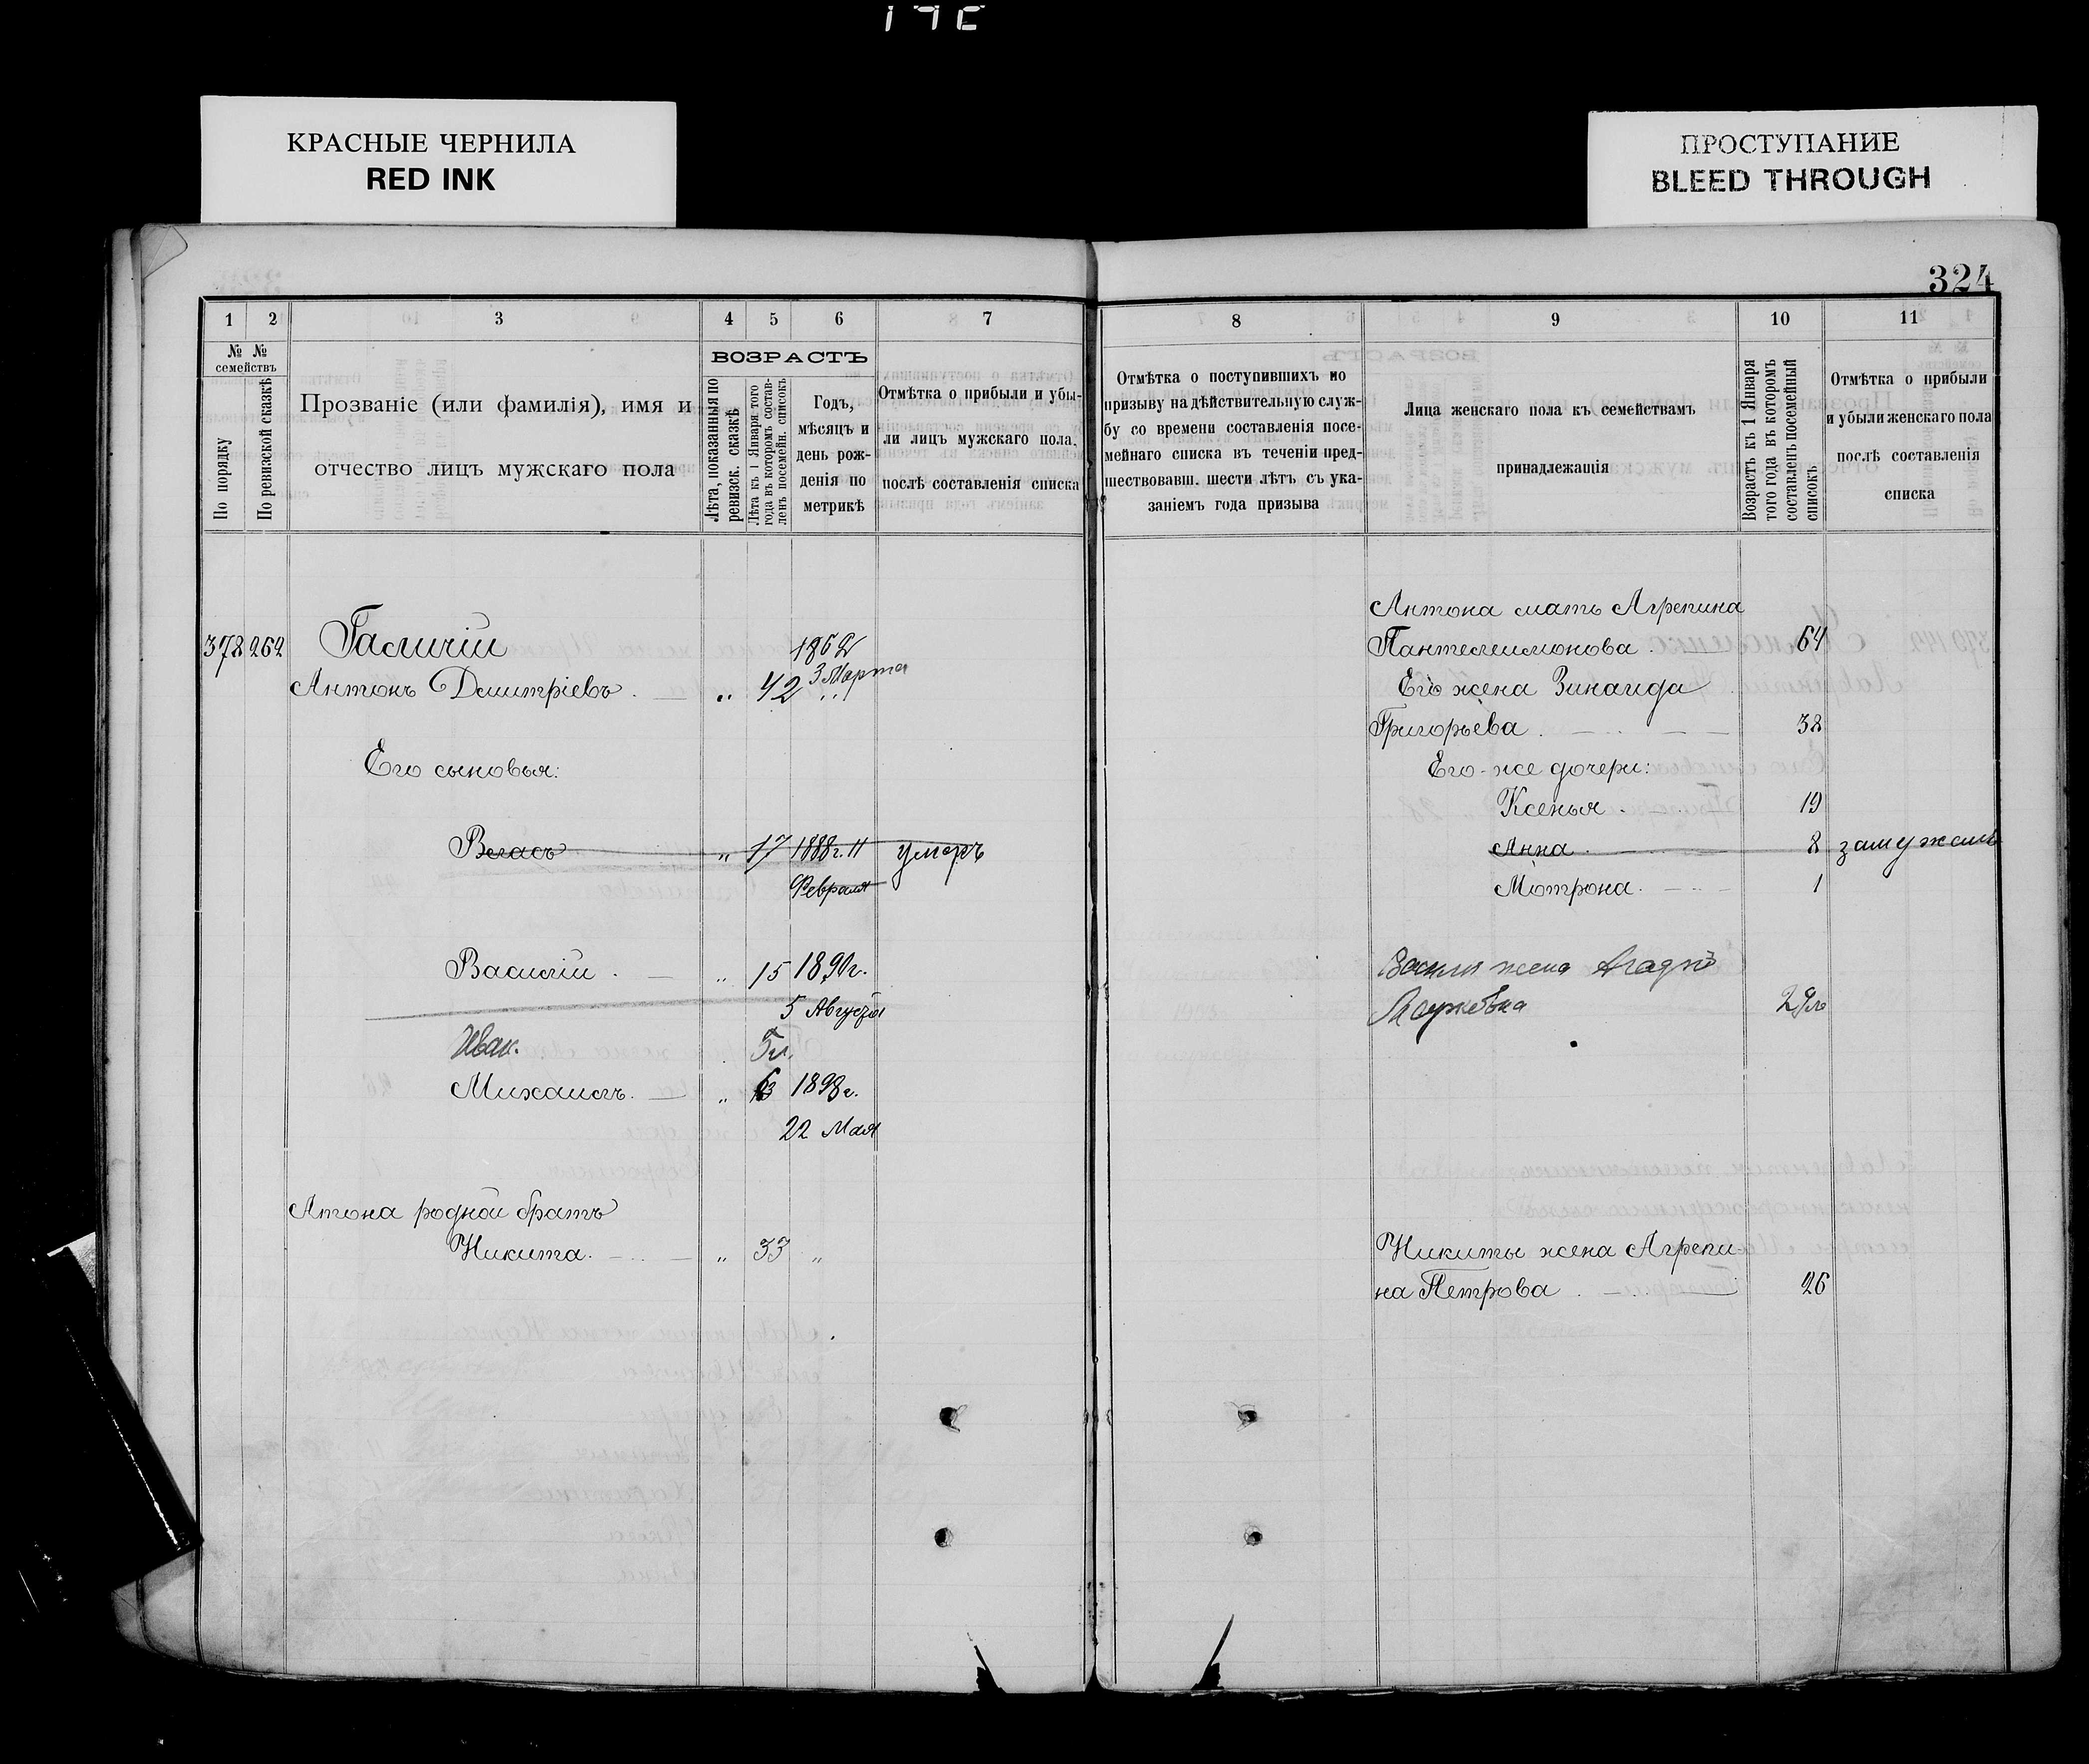 КРАСНЫЕ ЧЕРНИЛА
RED INK
ПРОСТУПАНИЕ
BLEED THROUGH
324
1 2 3 4 5 6 7
№ № семействъ
По порядку
По ревизской сказкѣ
Прозваніе (или фамилія), имя и
отчество лицъ мужскаго пола
ВОЗРАСТЪ
Лѣта, показанныя по
ревизск. сказкѣ
Лѣта къ 1 Января того
года въ которомъ состав-
ленъ посемейн. списокъ
Годъ,
мѣсяцъ и
день рож-
денія по
метрикѣ
Отмѣтка о прибыли и убы-
ли лицъ мужскаго пола,
послѣ составленія списка
378 262 1862
3 Марта
Антонъ Дмитріевъ 42
Его сыновья:
Власъ 17 1888 г. 11 умеръ
Февраля
Василій 15 1890 г.
5 Августа
Иван. 5 л.
Михаилъ 6 1898 г.
22 Мая
Атона родной братъ
Никита 33
8 9 10 11
Отмѣтка о поступившихъ по
призыву на дѣйствительную служ-
бу со времени составленія посе-
мейнаго списка въ теченіи пред-
шествовавш. шести лѣтъ съ ука-
заніемъ года призыва
Лица женскаго пола къ семействамъ
принадлежащія
Возрастъ къ 1 Января
того года въ которомъ
составленъ посемейный
списокъ
Отмѣтка о прибыли
и убыли женскаго пола
послѣ составленія
списка
Антона мать Агрепина
Пантелеимонова 64
Его жена Зинаида
Григорьева 38
Его-же дочери:
Ксенья 19
Анна 8 замужемъ
Мотрона 1
жена
Никиты жена Агрепи-
на Петрова 26